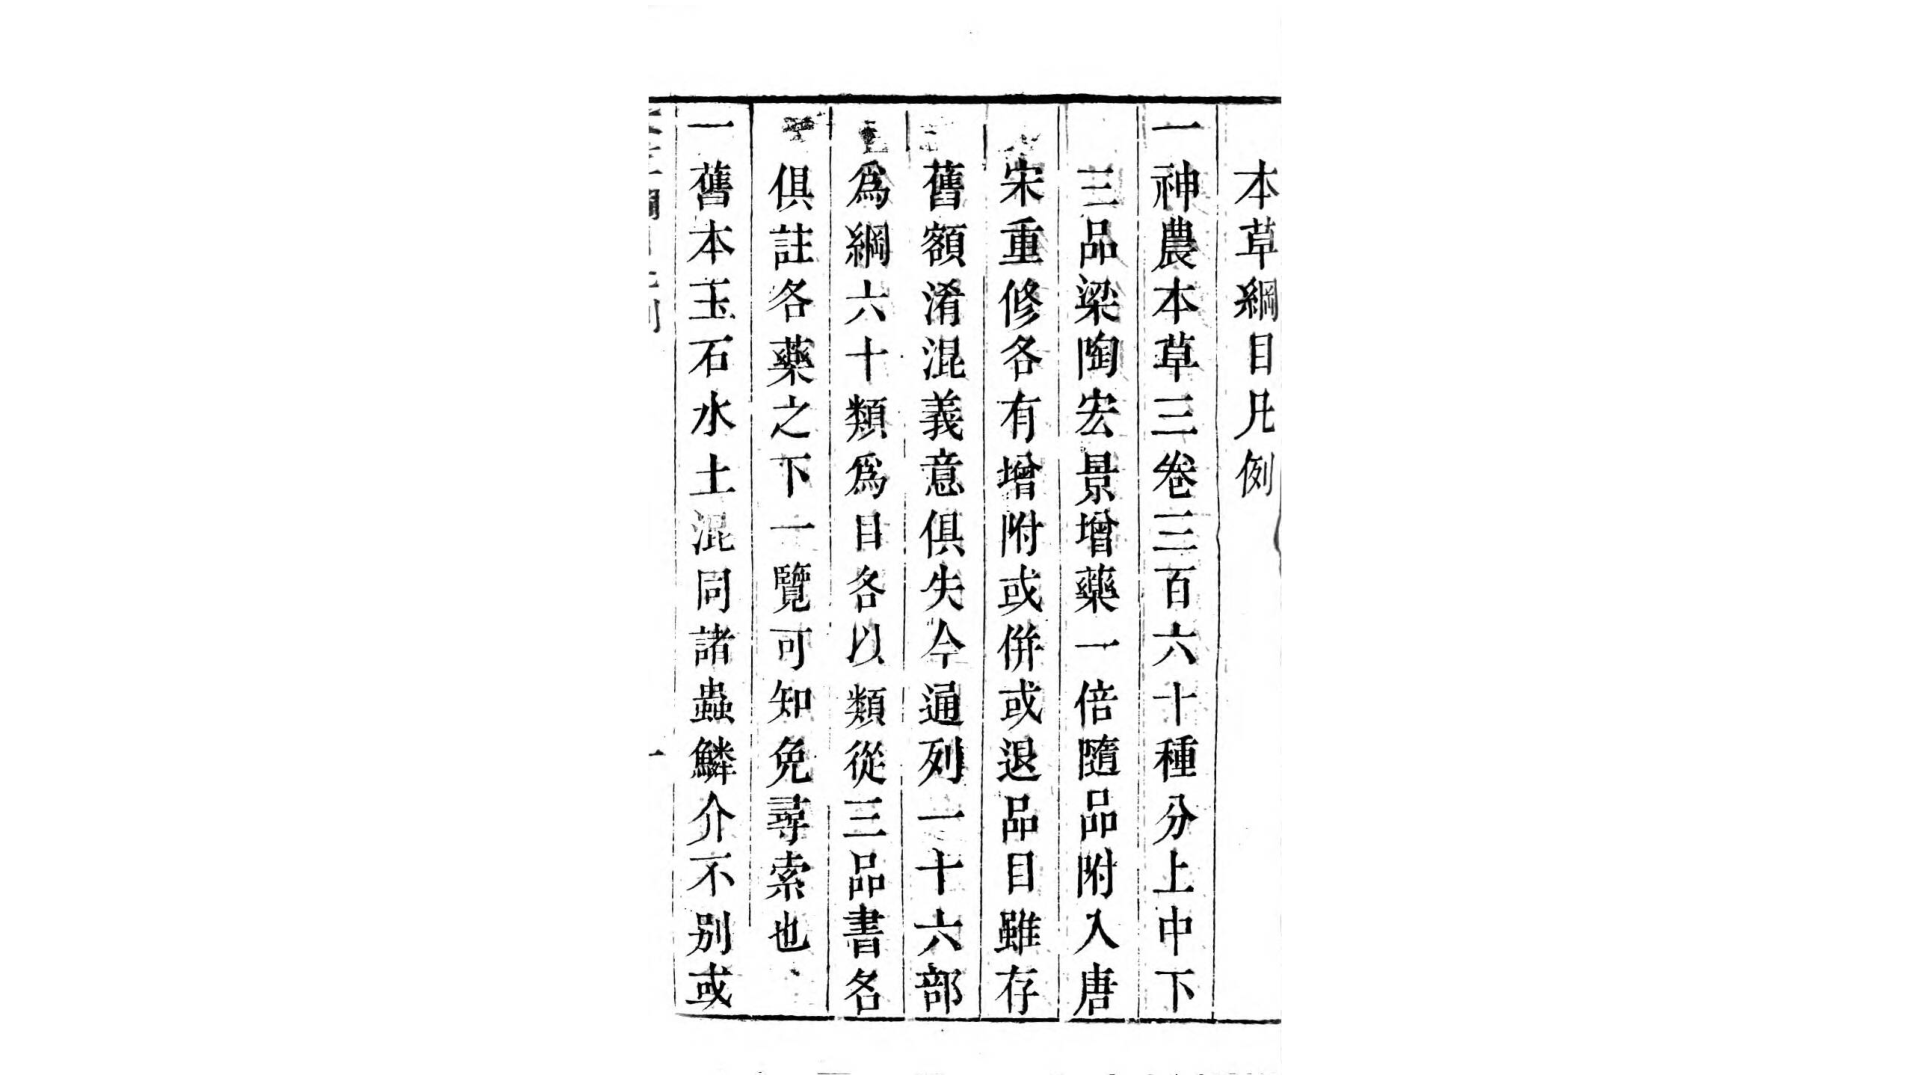 本草綱目凡例
一神農本草三卷三百六十種分上中下
三品梁陶宏景增藥一倍隨品附入唐
宋重修各有增附或併或退品目雖存
舊額淆混義意俱失今通列一十六部
爲綱六十類爲目各以類從三品書各
俱註各藥之下一覽可知免尋索也
一舊本玉石水土混同諸蟲鱗介不別或